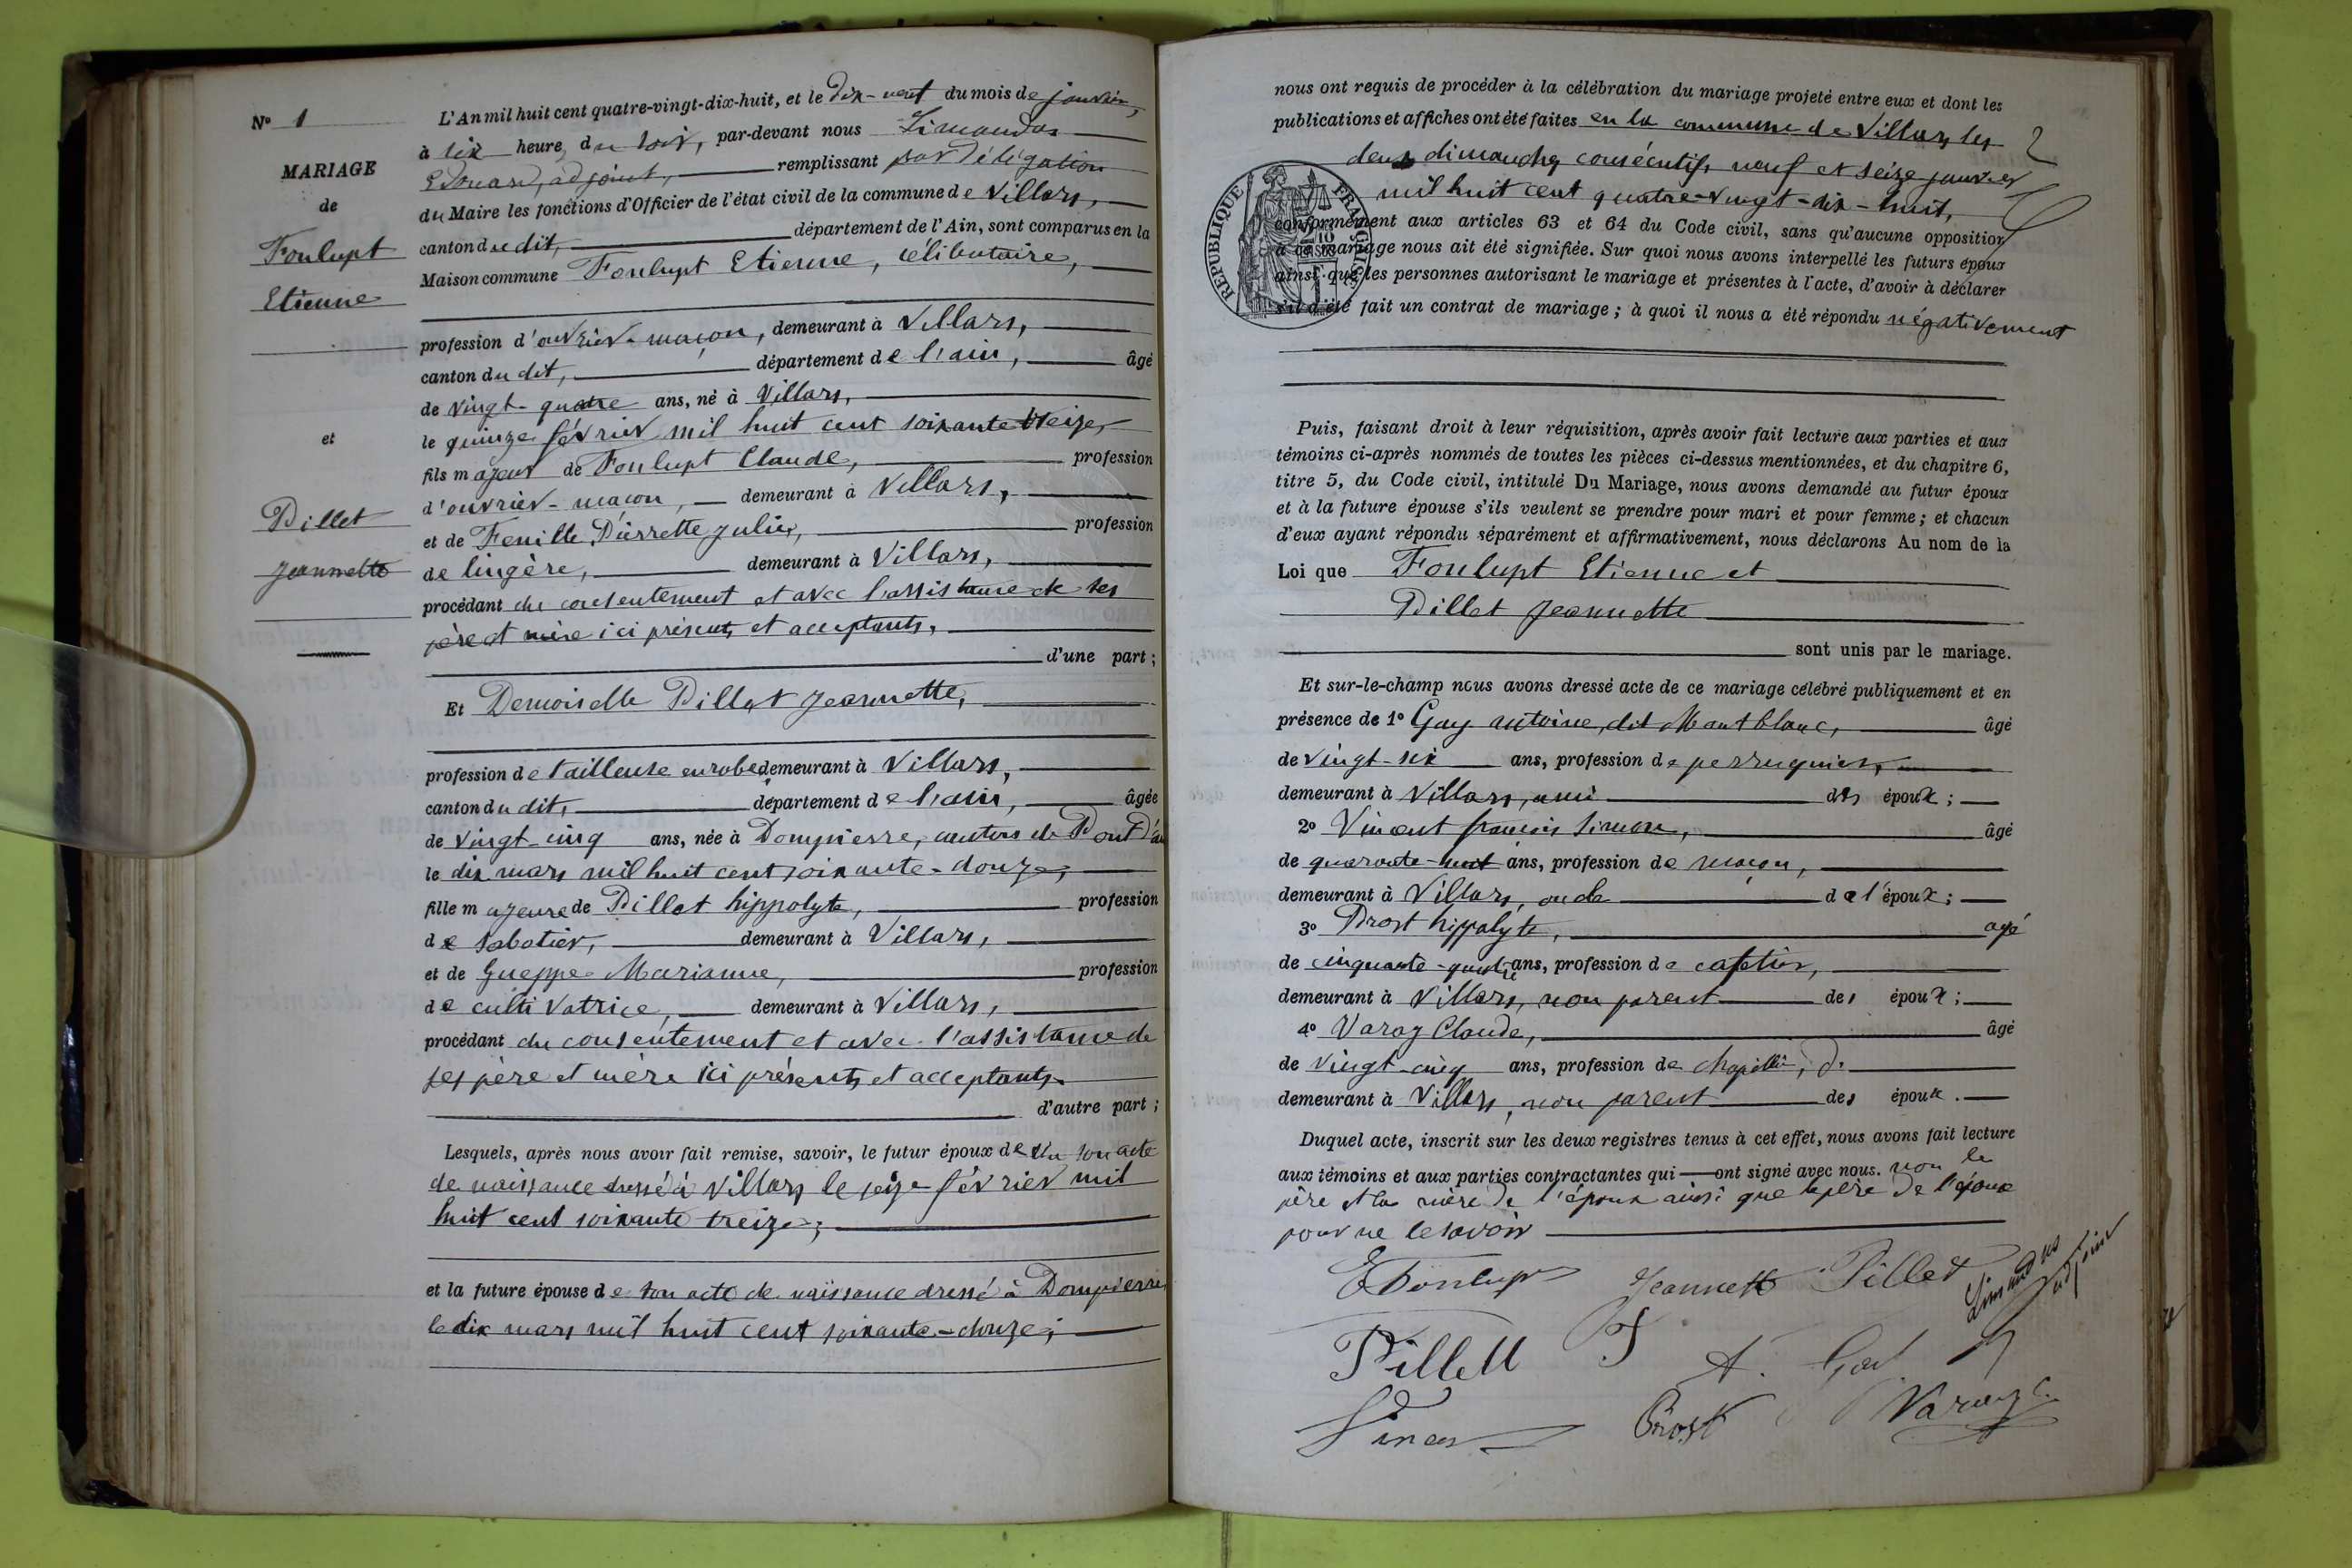 N° 1
MARIAGE
de
Foulupt
Etienne
et
Pillet
Jeannette
L'An mil huit cent quatre-vingt-dix-huit, et le dix-neuf du mois de janvier,
à six heures du soir, par-devant nous Limandas
Edouard, adjoint, remplissant par délégation
du Maire les fonctions d'Officier de l'état civil de la commune de Villars,
canton du dit, département de l'Ain, sont comparus en la
Maison commune Foulupt Etienne, célibataire,
profession d'ouvrier-maçon, demeurant à Villars,
canton du dit, département de l'ain, âgé
de vingt-quatre ans, né à Villars,
le quinze février mil huit cent soixante treize,
fils majeur de Foulupt Claude, profession
d'ouvrier-maçon, demeurant à Villars,
et de Feuille Pierrette Julie, profession
de lingère, demeurant à Villars,
procédant du consentement et avec l'assistance de ses
père et mère ici présents et acceptants,
d'une part ;
Et Demoiselle Pillet Jeannette,
profession de tailleuse en robes, demeurant à Villars,
canton du dit, département de l'ain, âgée
de vingt-cinq ans, née à Dompierre, canton de Pont d'ain
le dix mars mil huit cent soixante-douze,
fille majeure de Pillet hippolyte, profession
de sabotier, demeurant à Villars,
et de Gueppe Marianne, profession
de cultivatrice, demeurant à Villars,
procédant du consentement et avec l'assistance de
ses père et mère ici présents et acceptants.
d'autre part ;
Lesquels, après nous avoir fait remise, savoir, le futur époux de son acte
de naissance dressé à Villars le seize février mil
huit cent soixante treize ;
et la future épouse de son acte de naissance dressé à Dompierre
le dix mars mil huit cent soixante-douze ;
nous ont requis de procéder à la célébration du mariage projeté entre eux et dont les
publications et affiches ont été faites en la commune de Villars les
deux dimanches consécutifs neuf et seize janvier
mil huit cent quatre-vingt-dix-huit,
RÉPUBLIQUE FRANÇAISE
conformément aux articles 63 et 64 du Code civil, sans qu'aucune opposition
à ce mariage nous ait été signifiée. Sur quoi nous avons interpellé les futurs époux
ainsi que les personnes autorisant le mariage et présentes à l'acte, d'avoir à déclarer
s'il a été fait un contrat de mariage ; à quoi il nous a été répondu négativement
Puis, faisant droit à leur réquisition, après avoir fait lecture aux parties et aux
témoins ci-après nommés de toutes les pièces ci-dessus mentionnées, et du chapitre 6,
titre 5, du Code civil, intitulé Du Mariage, nous avons demandé au futur époux
et à la future épouse s'ils veulent se prendre pour mari et pour femme ; et chacun
d'eux ayant répondu séparément et affirmativement, nous déclarons Au nom de la
Loi que Foulupt Etienne et
Pillet Jeannette
sont unis par le mariage.
Et sur-le-champ nous avons dressé acte de ce mariage célébré publiquement et en
présence de 1° Gay antoine, dit Montblanc, âgé
de vingt-six ans, profession de perruquier,
demeurant à Villars, ami des époux ;
2° Vincent françois Simon, âgé
de quarante-huit ans, profession de maçon,
demeurant à Villars, oncle de l'époux ;
3° Prost hippolyte, agé
de cinquante-quatre ans, profession de cafetier,
demeurant à Villars, non parent des époux ;
4° Varay Claude, âgé
de vingt-cinq ans, profession de chapelier,
demeurant à Villars, non parent des époux.
Duquel acte, inscrit sur les deux registres tenus à cet effet, nous avons fait lecture
aux témoins et aux parties contractantes qui ont signé avec nous. non le
père et la mère de l'époux ainsi que le père de l'épouse
pour ne le savoir
E Foulupt Jeannette Pillet
Limandas
adjoint
Pillet A. Gay
Vincent Prost Varay C.